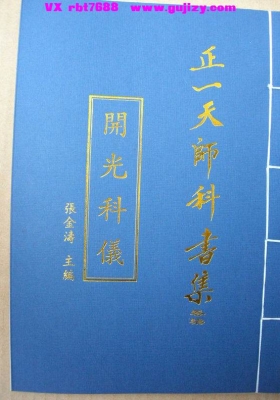 VX rbt7688    www.gujizy.com
正一天師科書集
開光科儀
張金濤 主編